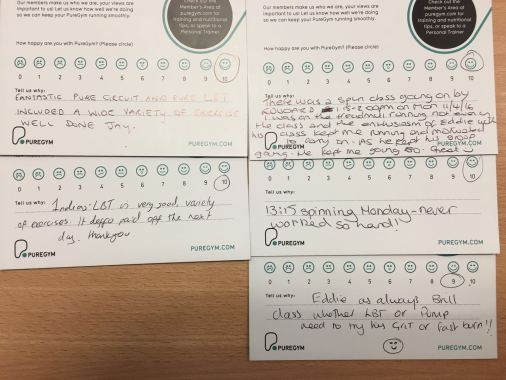 Our members make us who we are, your views are
important to us! Let us know how well we're doing
so we can keep your PureGym running smoothly.
Check out the
Member's Area at
Puregym.com for
training and nutritional
tips, or speak to a
Personal Trainer.
How happy are you with PureGym? (Please circle)
0 1 2 3 4 5 6 7 8 9 10
Tell us why:
FANTASTIC PURE CIRCUIT AND PURE LBT
INCLUDED A WIDE VARIETY OF EXERCISE
WELL DONE JAY.
PUREGYM
PUREGYM.COM
0 1 2 3 4 5 6 7 8 9 10
Tell us why:
Indias LBT is very good, variety
of exercises. It deffo paid off the next
day. thankyou
PUREGYM
PUREGYM.COM
Our members make us who we are, your views are
important to us! Let us know how well we're doing
so we can keep your PureGym running smoothly.
Check out the
Member's Area at
puregym.com for
training and nutritional
tips, or speak to a
Personal Trainer.
How happy are you with PureGym? (Please circle)
0 1 2 3 4 5 6 7 8 9 10
Tell us why:
There was a spin class going on by
EDWARD 1:15-2:00pm on Mon 11/4/16
I was on the treadmill running not even in
the class and the enthusiasm of Eddie with
his class kept me running and motivated
to carry on. As he kept his group
going. He kept me going too. Great
PUREGYM
PUREGYM.COM
0 1 2 3 4 5 6 7 8 9 10
Tell us why:
13:15 spinning Monday - never
worked so hard!
PUREGYM
PUREGYM.COM
0 1 2 3 4 5 6 7 8 9 10
Tell us why:
Eddie as always Brill
class whether LBT or Pump
need to try his Grit or fast burn!!
PUREGYM
PUREGYM.COM